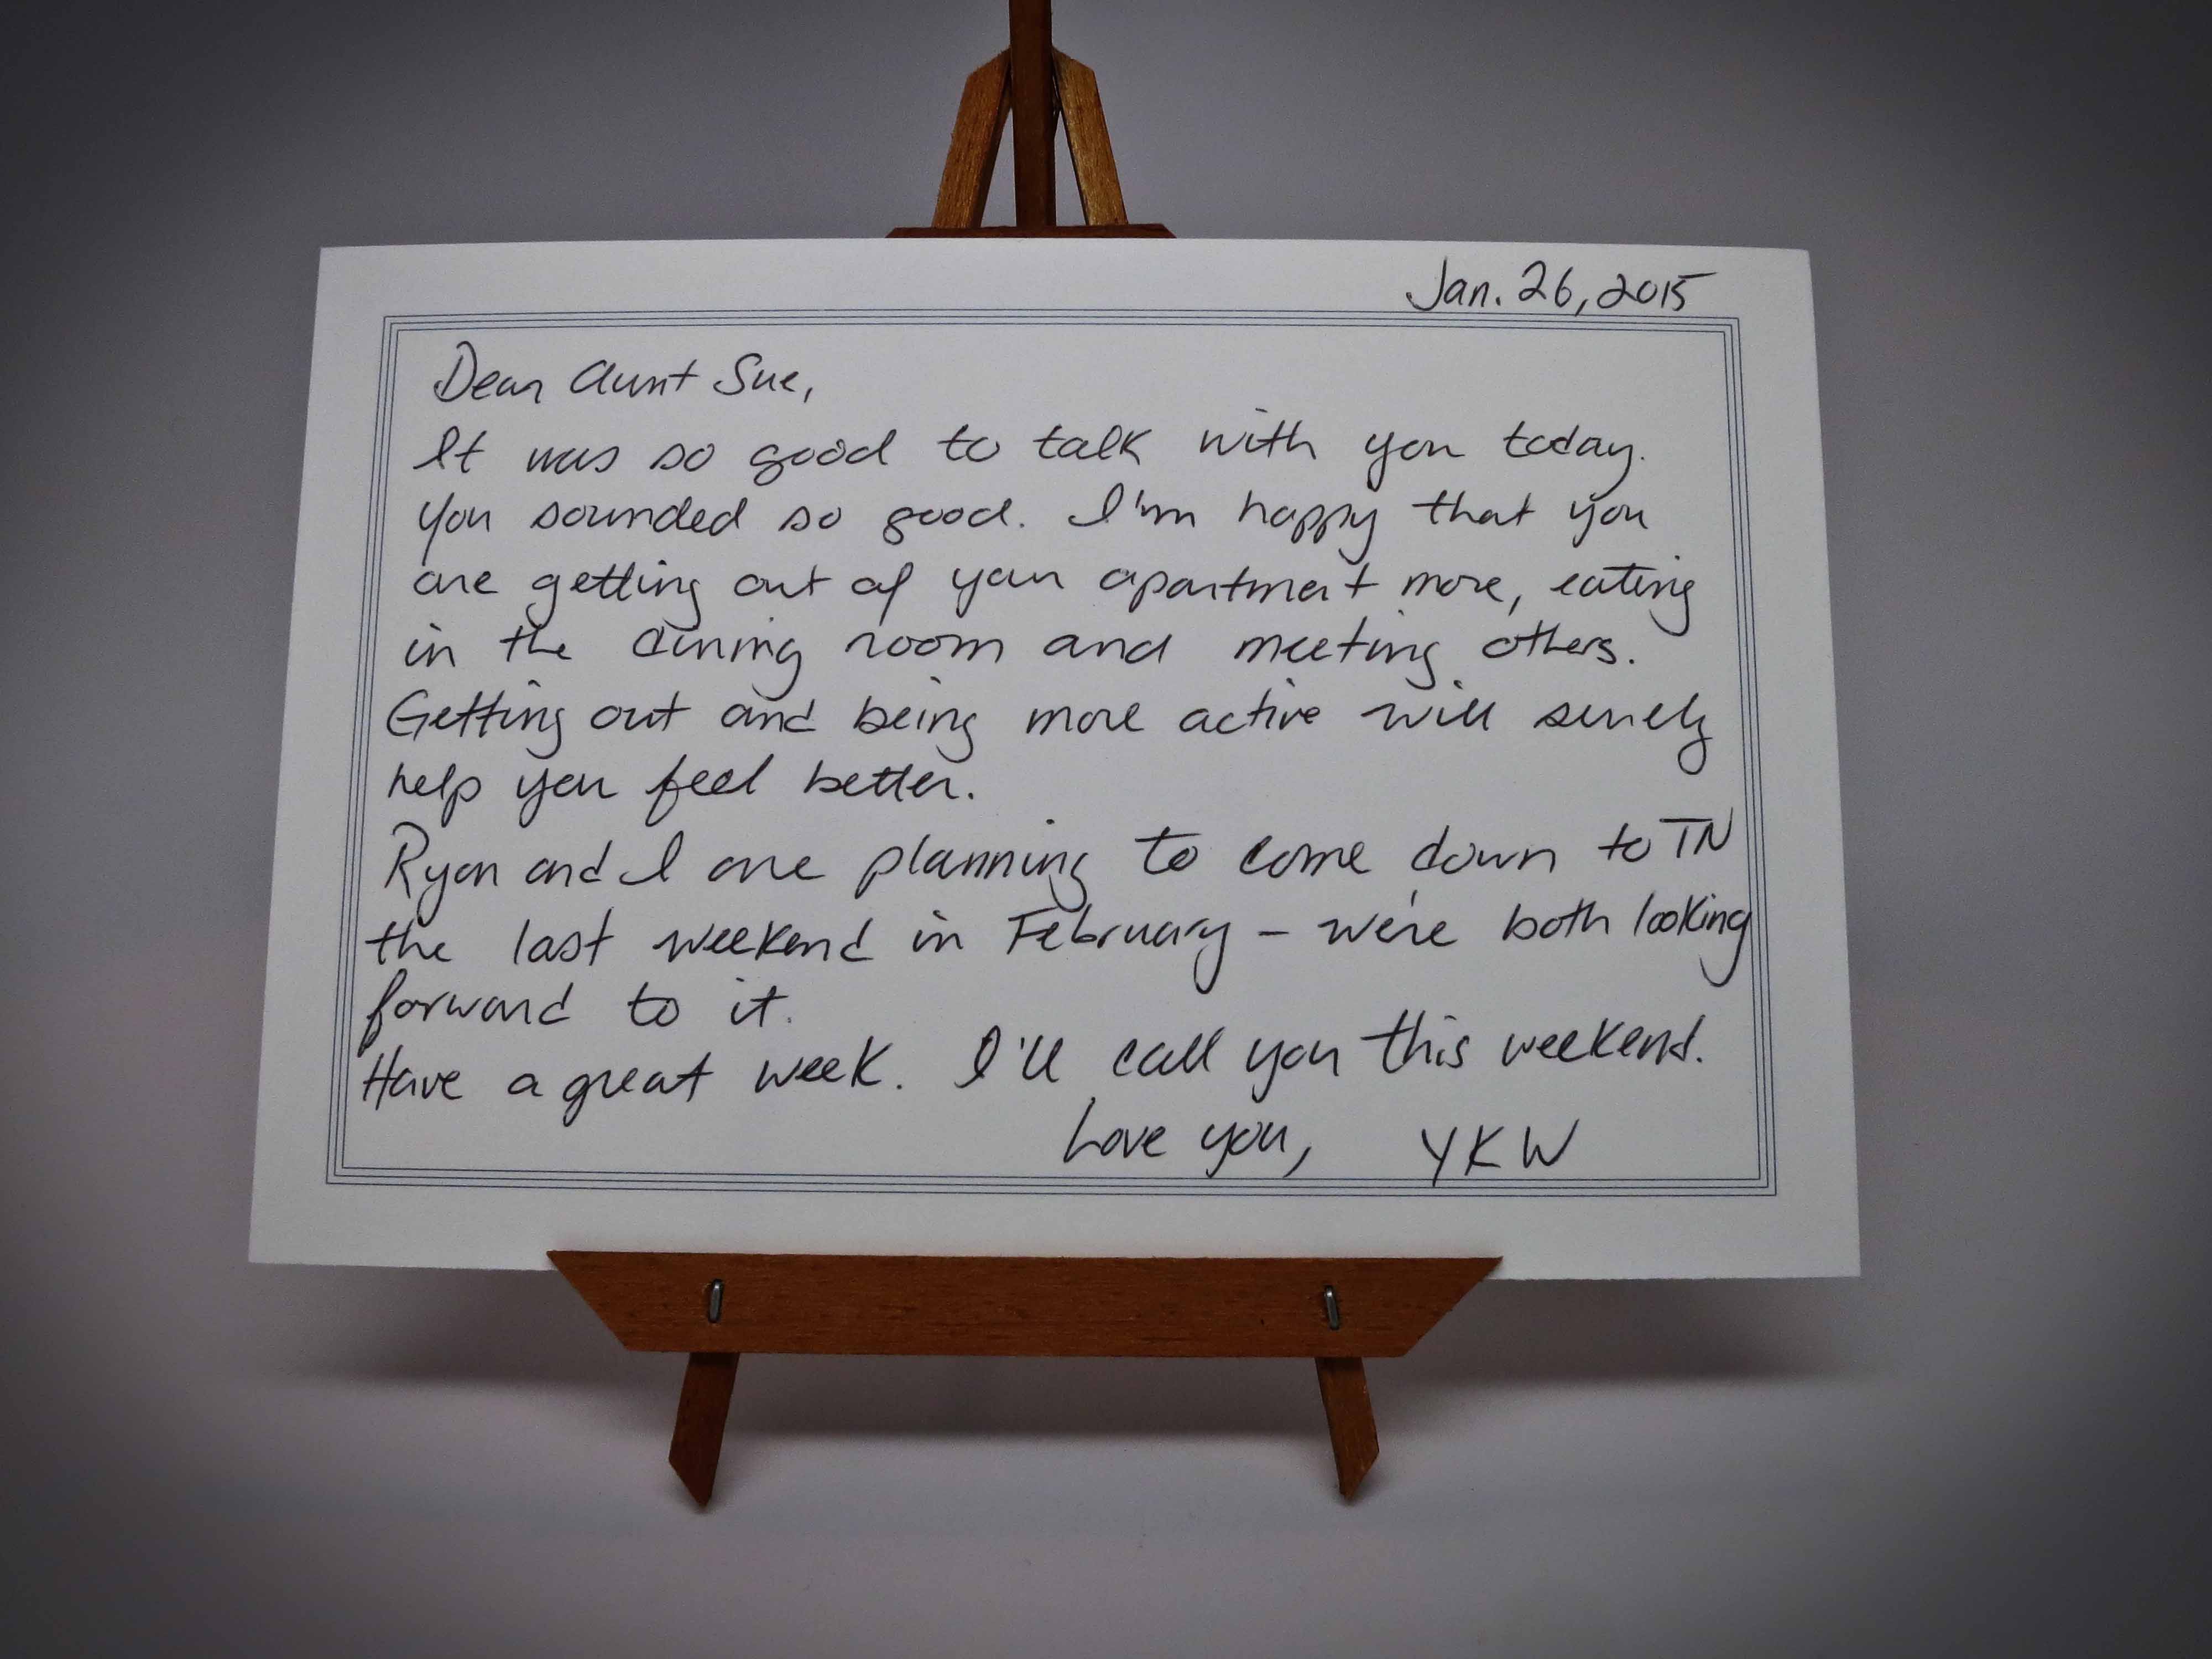 Jan. 26, 2015
Dear Aunt Sue,
It was so good to talk with you today.
You sounded so good. I'm happy that you
are getting out of your apartment more, eating
in the dining room and meeting others.
Getting out and being more active will surely
help you feel better.
Ryan and I are planning to come down to TN
the last weekend in February - we're both looking
forward to it.
Have a great week. I'll call you this weekend.
Love you, YKW